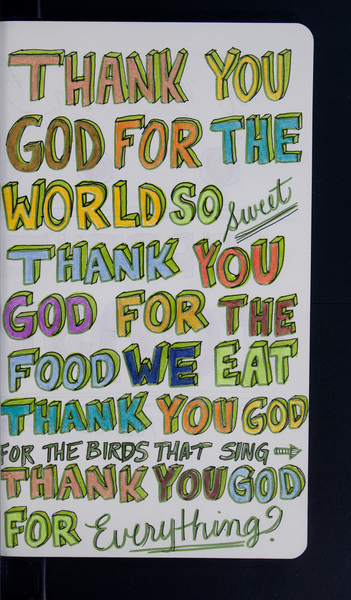 THANK YOU
GOD FOR THE
WORLD SO sweet
THANK YOU
GOD FOR THE
FOOD WE EAT
THANK YOU GOD
FOR THE BIRDS THAT SING →
THANK YOU GOD
FOR Everything?